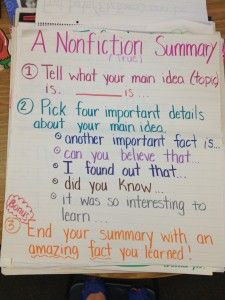 A Nonfiction Summary
(True)
① Tell what your main idea (topic)
is. ______ is ...
② Pick four important details
about your main idea.
another important fact is...
can you believe that...
I found out that...
did you know...
it was so interesting to
learn ....
Bonus!
③ End your summary with an
amazing fact you learned!